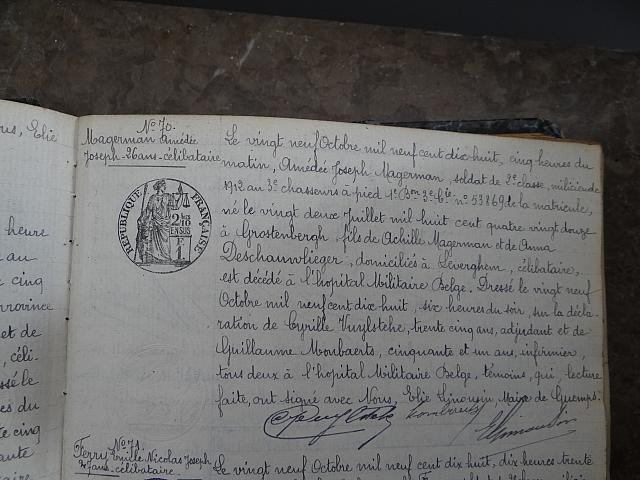 us, Elie
heure
au
cinq
province
et de
, céli-
ssé le
es du
te cinq
uante
cture
N° 70.
Magerman Amédée
Joseph-26ans-célibataire
RÉPUBLIQUE FRANÇAISE
2/10
EN SUS
F
1
Le vingt neuf Octobre mil neuf cent dix-huit, cinq heures du
matin, Amédée Joseph Magerman, soldat de 2e classe, milicien de
1912 au 3e chasseurs à pied 1er Bon 3e Cie n° 53869 de la matricule,
né le vingt deux Juillet mil huit cent quatre vingt douze
à Grostenbergh, fils de Achille Magerman et de Anna
Deschauwlieger, domiciliés à Leverghem, célibataire,
est décédé à l'hopital Militaire Belge. Dressé le vingt neuf
Octobre mil neuf cent dix-huit, six heures du soir, sur la décla-
ration de Cyrille Vuylsteke, trente cinq ans, adjudant et de
Guillaume Monbaerts, cinquante et un ans, infirmier,
tous deux à l'hopital Militaire Belge, témoins, qui, lecture
faite, ont signé avec Nous, Elie Limousin, Maire de Guemps.
N° 71.
Ferry Emile Nicolas Joseph
27ans-célibataire.
Le vingt neuf Octobre mil neuf cent dix-huit, dix heures trente